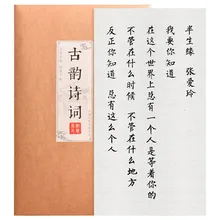 古韵诗词
半生缘 张爱玲
我要你知道
在这个世界上总有一个人是等着你的
不管在什么时候 不管在什么地方
反正你知道 总有这么个人